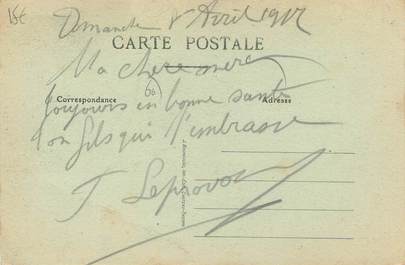 15€
Dimanche 8 Avril 1917
CARTE POSTALE
Ma chere mere
Correspondance
Adresse
toujours en bonne santé
ton fils qui t'embrasse
F Leprovost